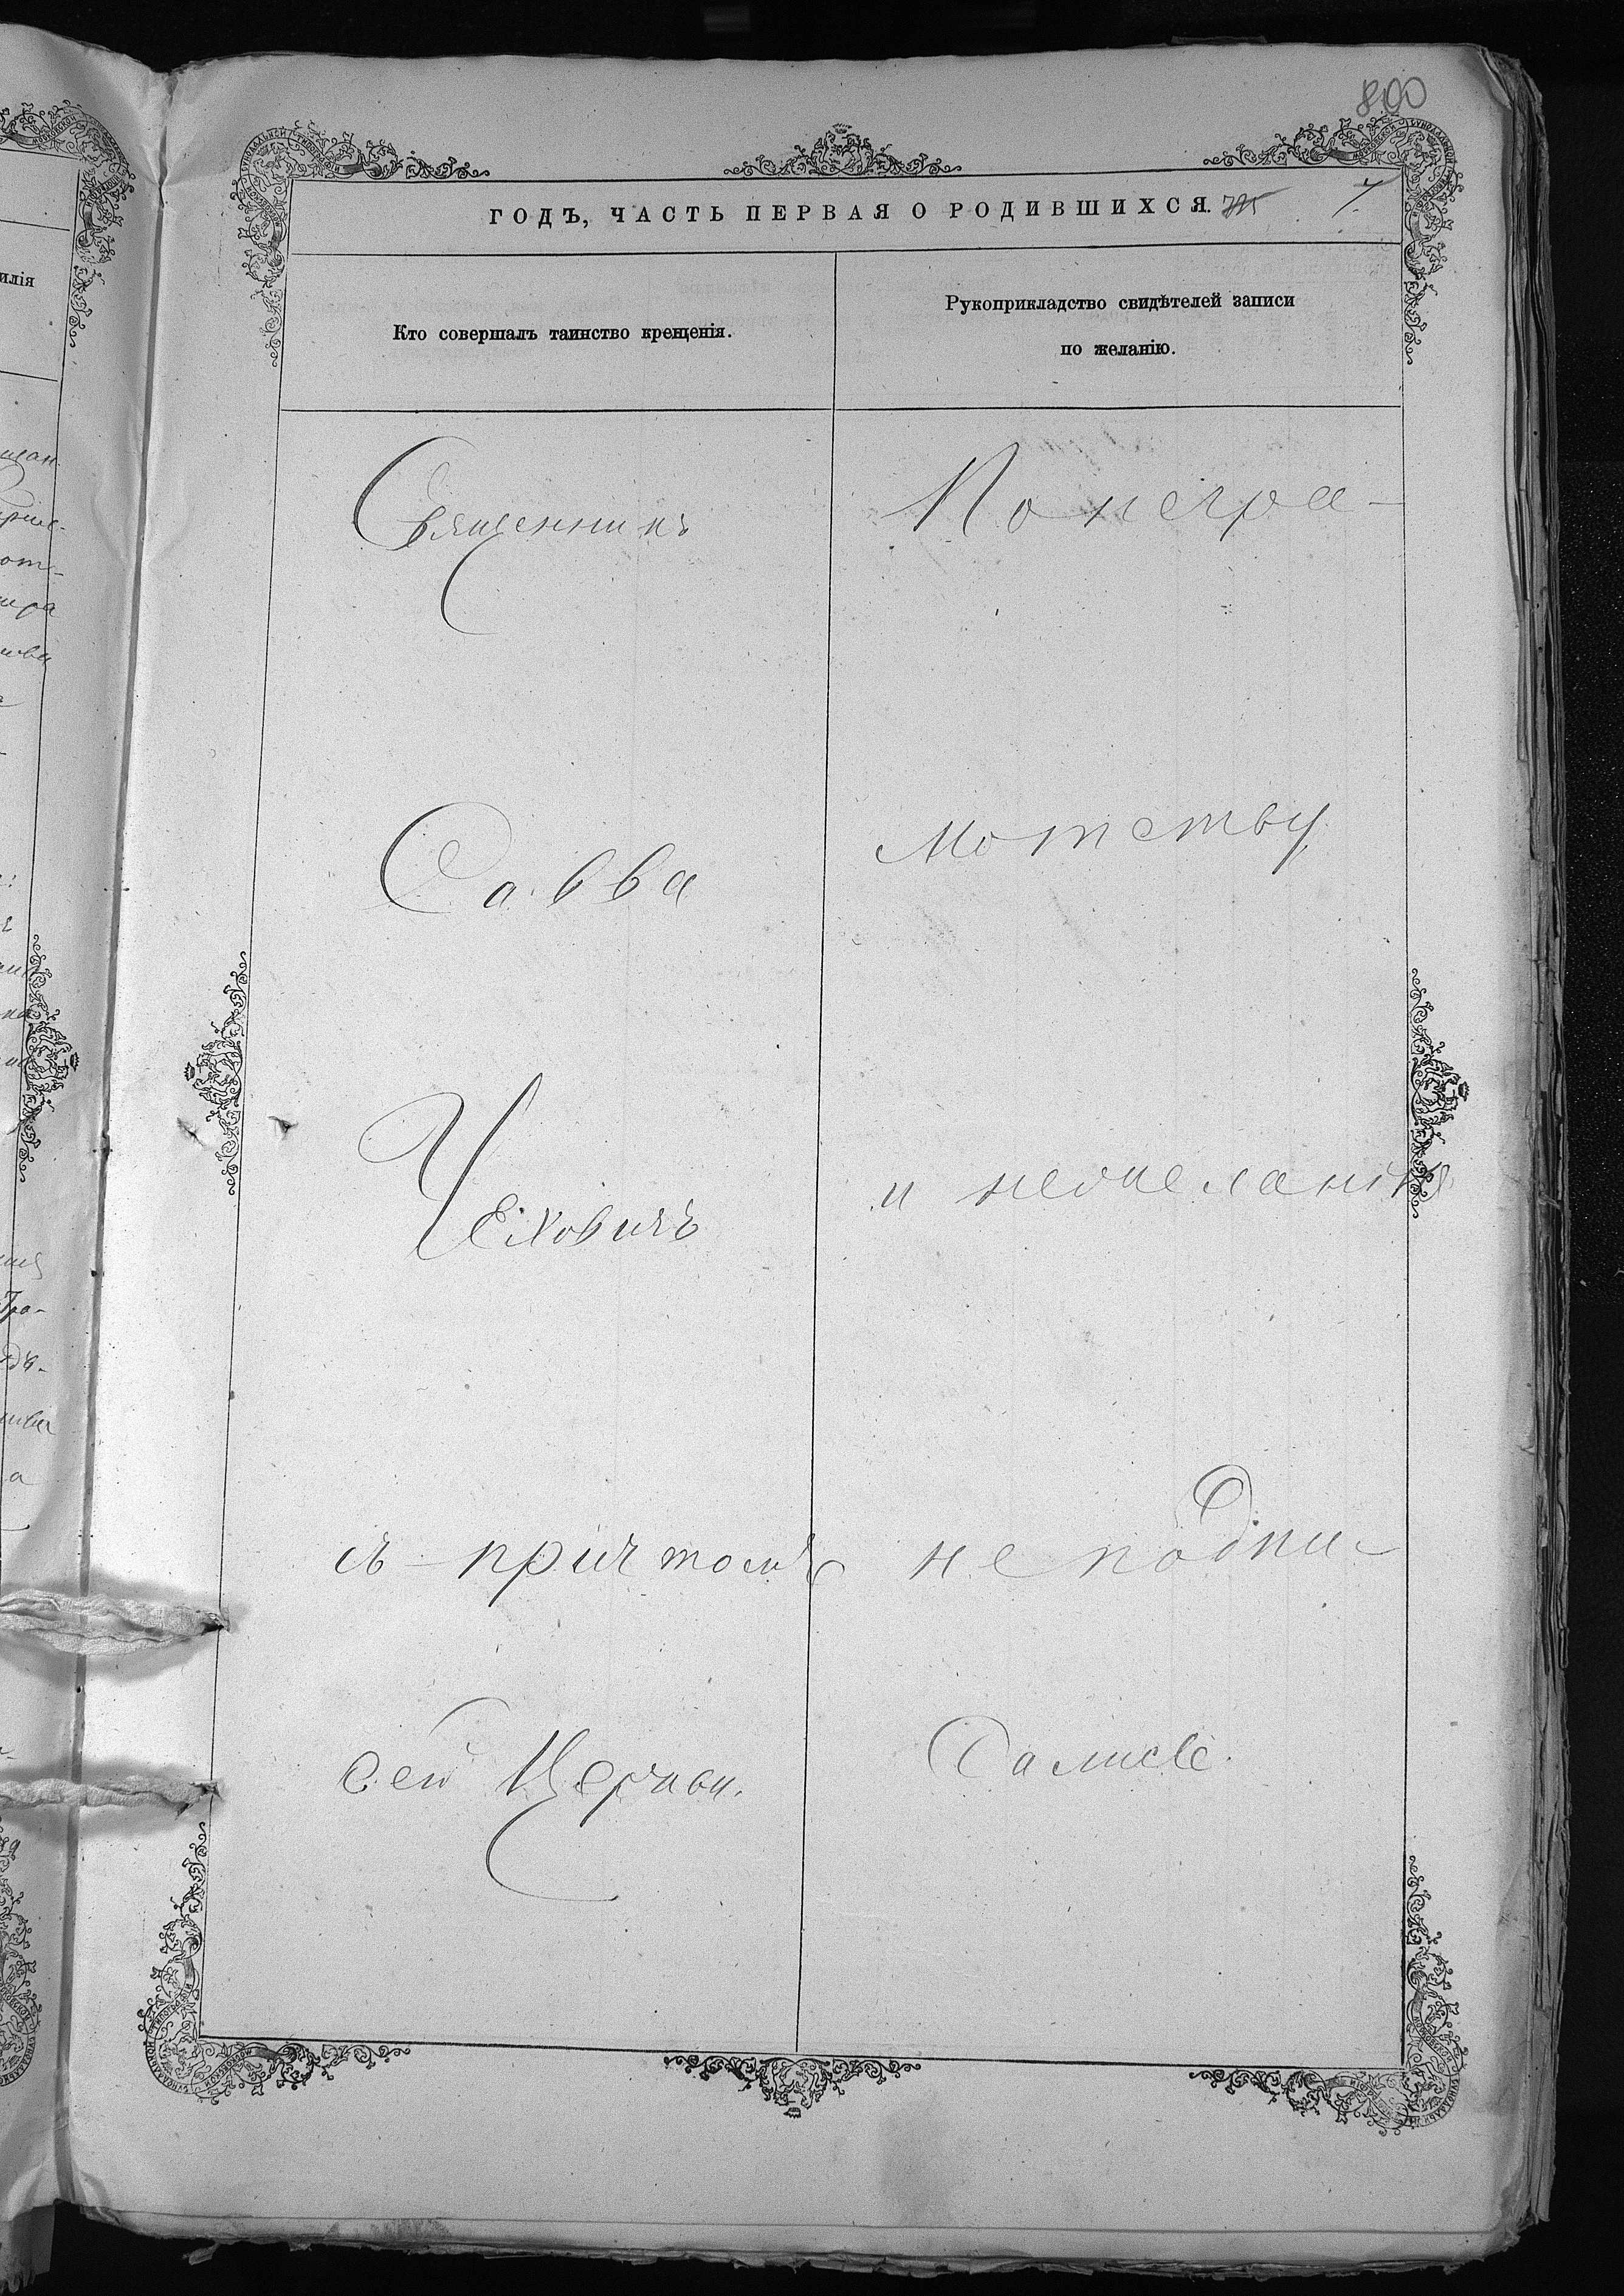 800
ГОДЪ, ЧАСТЬ ПЕРВАЯ О РОДИВШИХСЯ. 7.
Кто совершалъ таинство крещенія.
Рукоприкладство свидѣтелей записи
по желанію.
Священникъ
Савва
Чеховичъ
съ-причтомъ
сей Церкви.
По негра-
мотству
и нежеланію
не подпи-
сались.
илія